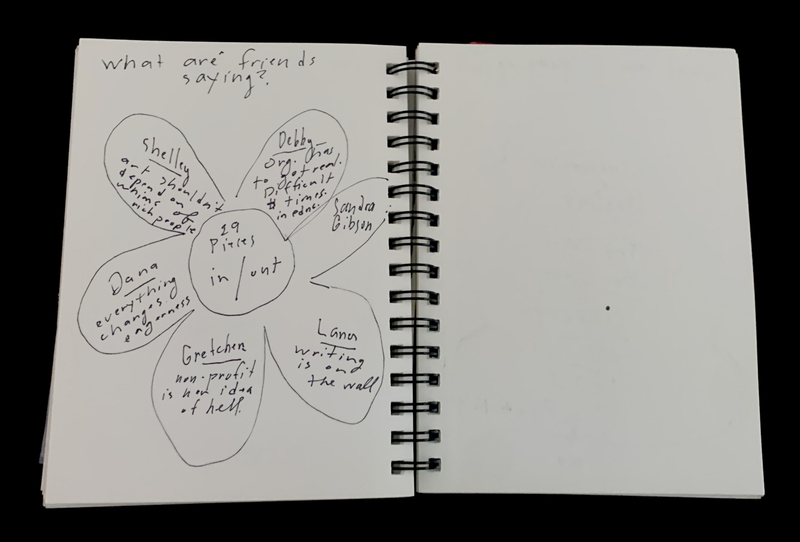 what are friends
saying?
Shelley
art shouldn't
depend on
whims of
rich people
Debby
Org. has
to get real.
Difficult
times.
in educ.
Sandra
Gibson
19
Pieces
in / out
Dana
everything
changes
eagerness
Gretchen
non-profit
is her idea
of hell.
Lana
writing
is on
the wall